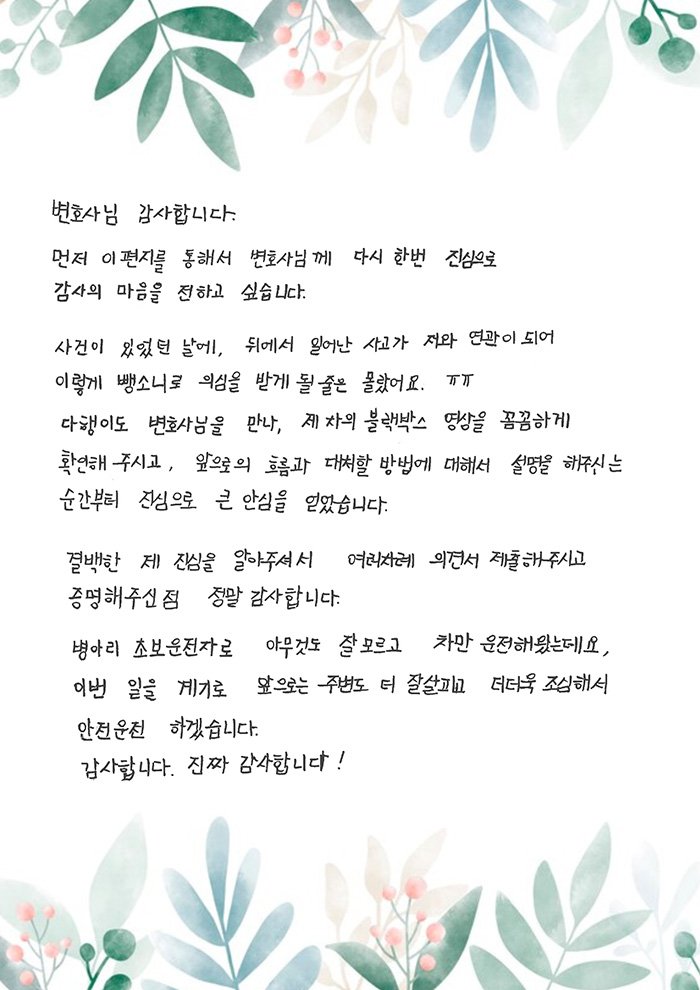 변호사님 감사합니다.
먼저 이 편지를 통해서 변호사님께 다시 한번 진심으로
감사의 마음을 전하고 싶습니다.
사건이 있었던 날에, 뒤에서 일어난 사고가 저와 연관이 되어
이렇게 뺑소니로 의심을 받게 될 줄은 몰랐어요. ㅠㅠ
다행이도 변호사님을 만나, 제 차의 블랙박스 영상을 꼼꼼하게
확인해 주시고, 앞으로의 흐름과 대처할 방법에 대해서 설명을 해주시는
순간부터 진심으로 큰 안심을 얻었습니다.
결백한 제 진심을 알아주셔서 여러차례 의견서 제출해주시고
증명해주신 점 정말 감사합니다.
병아리 초보운전자로 아무것도 잘 모르고 차만 운전해왔는데요,
이번 일을 계기로 앞으로는 주변도 더 잘살피고 더더욱 조심해서
안전운전 하겠습니다.
감사합니다. 진짜 감사합니다!